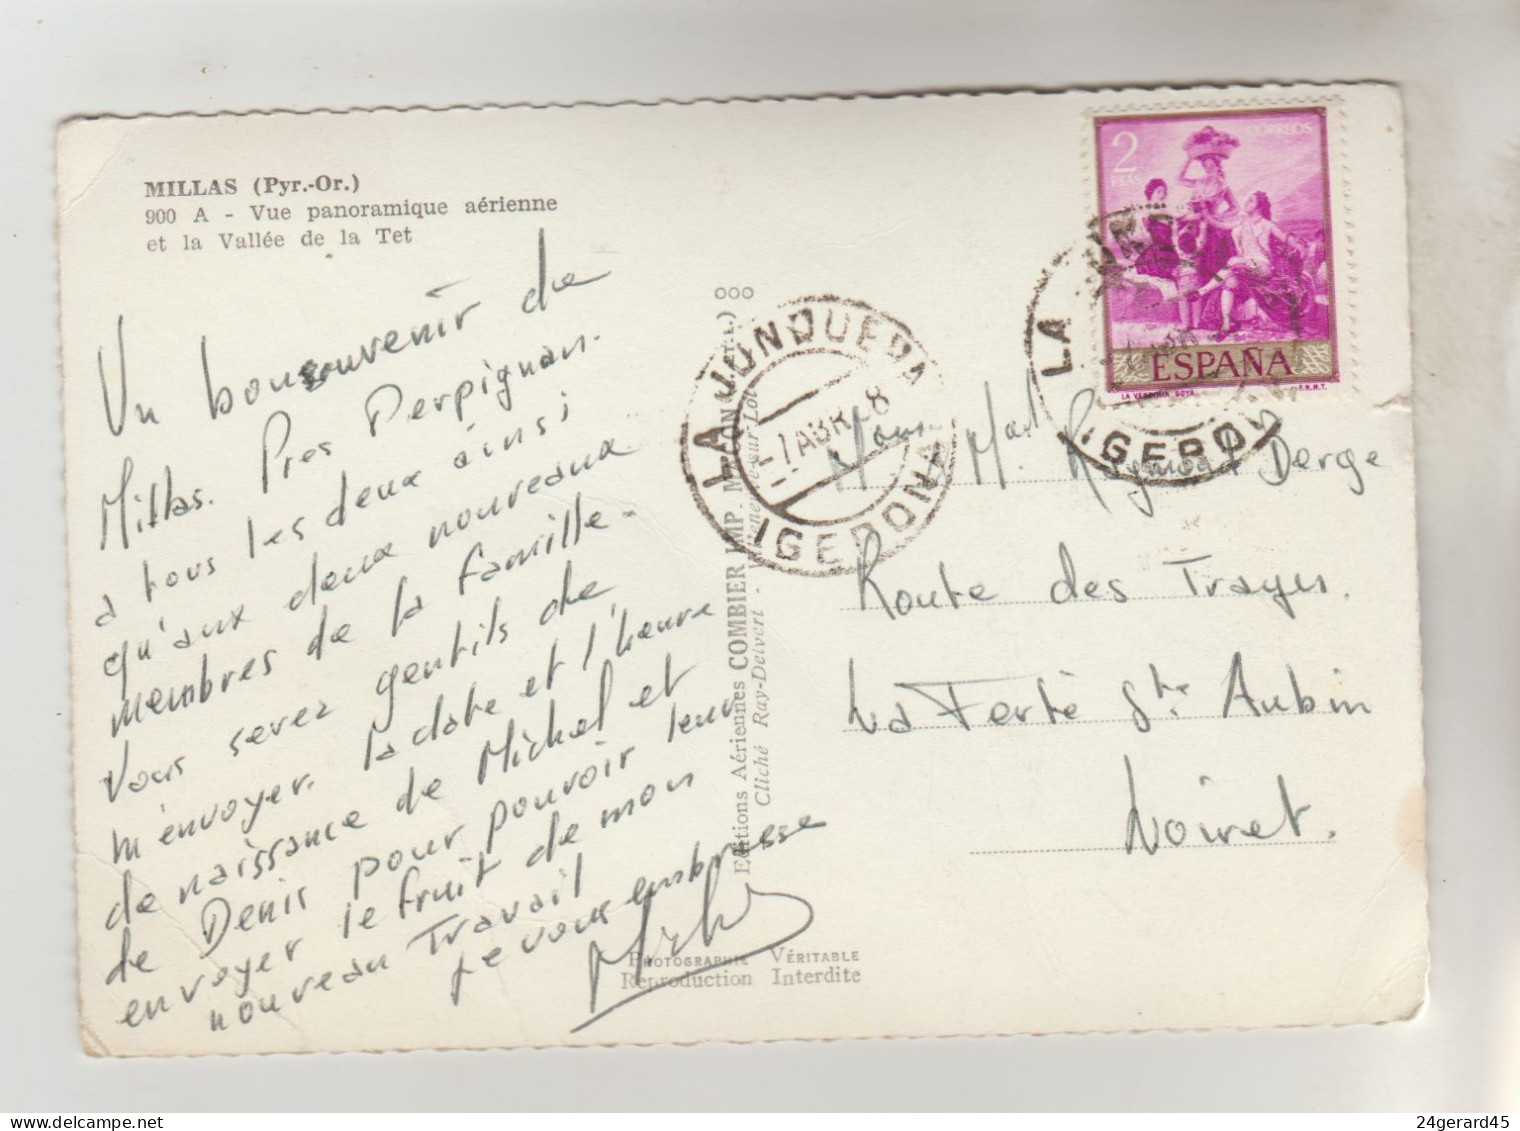 MILLAS (Pyr.-Or.)
900 A - Vue panoramique aérienne
et la Vallée de la Tet
Un bon souvenir de
Millas. Pres Perpignan.
a tous les deux ainsi
qu'aux deux nouveaux
membres de la famille.
Vous serez gentils de
m'envoyer. la date et l'heure
de naissance de Michel et
de Denis pour pouvoir leur
envoyer le fruit de mon
nouveau Travail
je vous embrasse
OOO
Editions Aériennes COMBIER IMP. MACON
Cliché Ray-Delvert - Villeneuve-sur-Lot
PHOTOGRAPHIE VÉRITABLE
Reproduction Interdite
LA JUNQUERA
-7 ABR. 68
(GERONA)
2
PTAS
CORREOS
ESPAÑA
LA VENDIMIA GOYA.
F.N.M.T.
LA
(GERO
M. Berge
Route des
La Ferté Ste Aubin
Loiret.
24gerard45